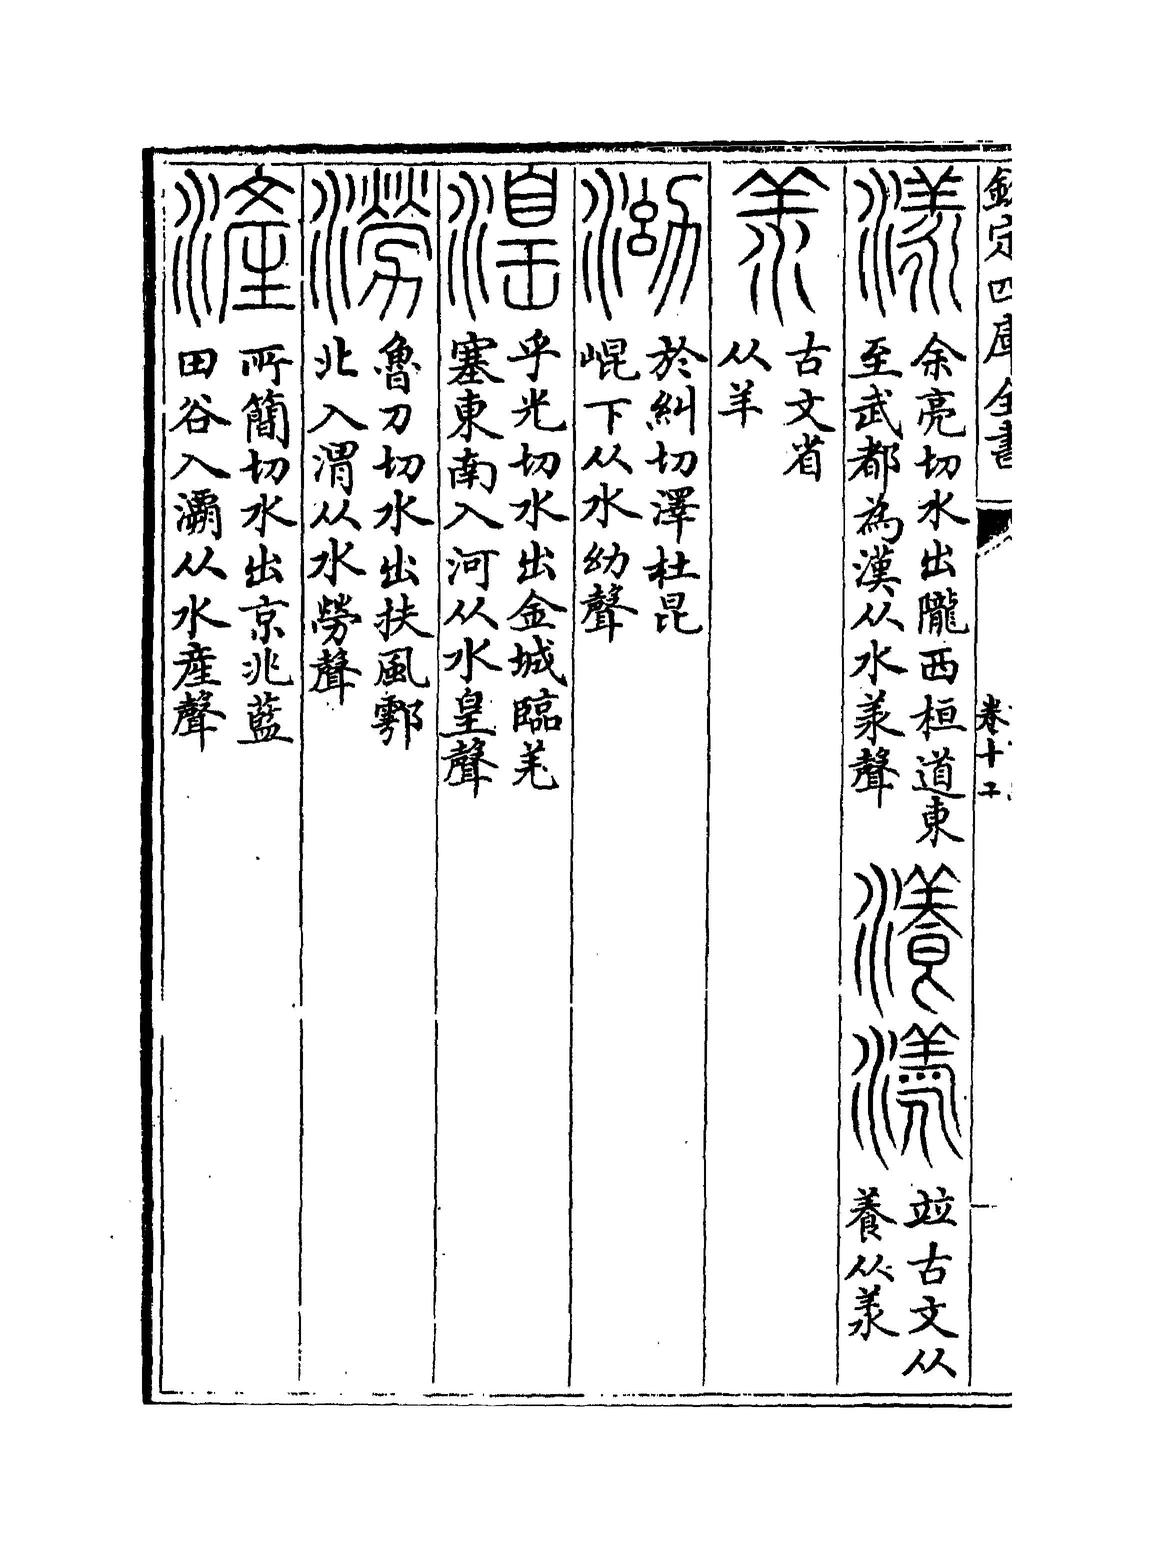 欽定四庫全書
卷十
漾
余亮切水出隴西桓道東
至武都為漢从水羕聲
瀁
漾
竝古文从
養从羕
羕
古文省
从羊
泑
於糾切澤杜昆
崐下从水幼聲
湟
乎光切水出金城臨羌
塞東南入河从水皇聲
澇
魯刀切水出扶風鄠
北入渭从水勞聲
滻
所簡切水出京兆藍
田谷入灞从水産聲